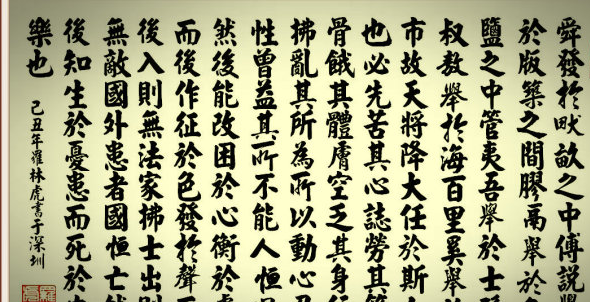 舜發於畎畝之中傅說舉
於版築之間膠鬲舉於
鹽之中管夷吾舉於士
叔敖舉於海百里奚舉
市故天將降大任於斯
也必先苦其心誌勞其筋
骨餓其體膚空乏其身行
拂亂其所為所以動心忍
性曾益其所不能人恒
然後能改困於心衡於慮
而後作征於色發於聲而
後入則無法家拂士出則
無敵國外患者國恒亡然
後知生於憂患而死於
樂也
己丑年羅林虎書于深圳